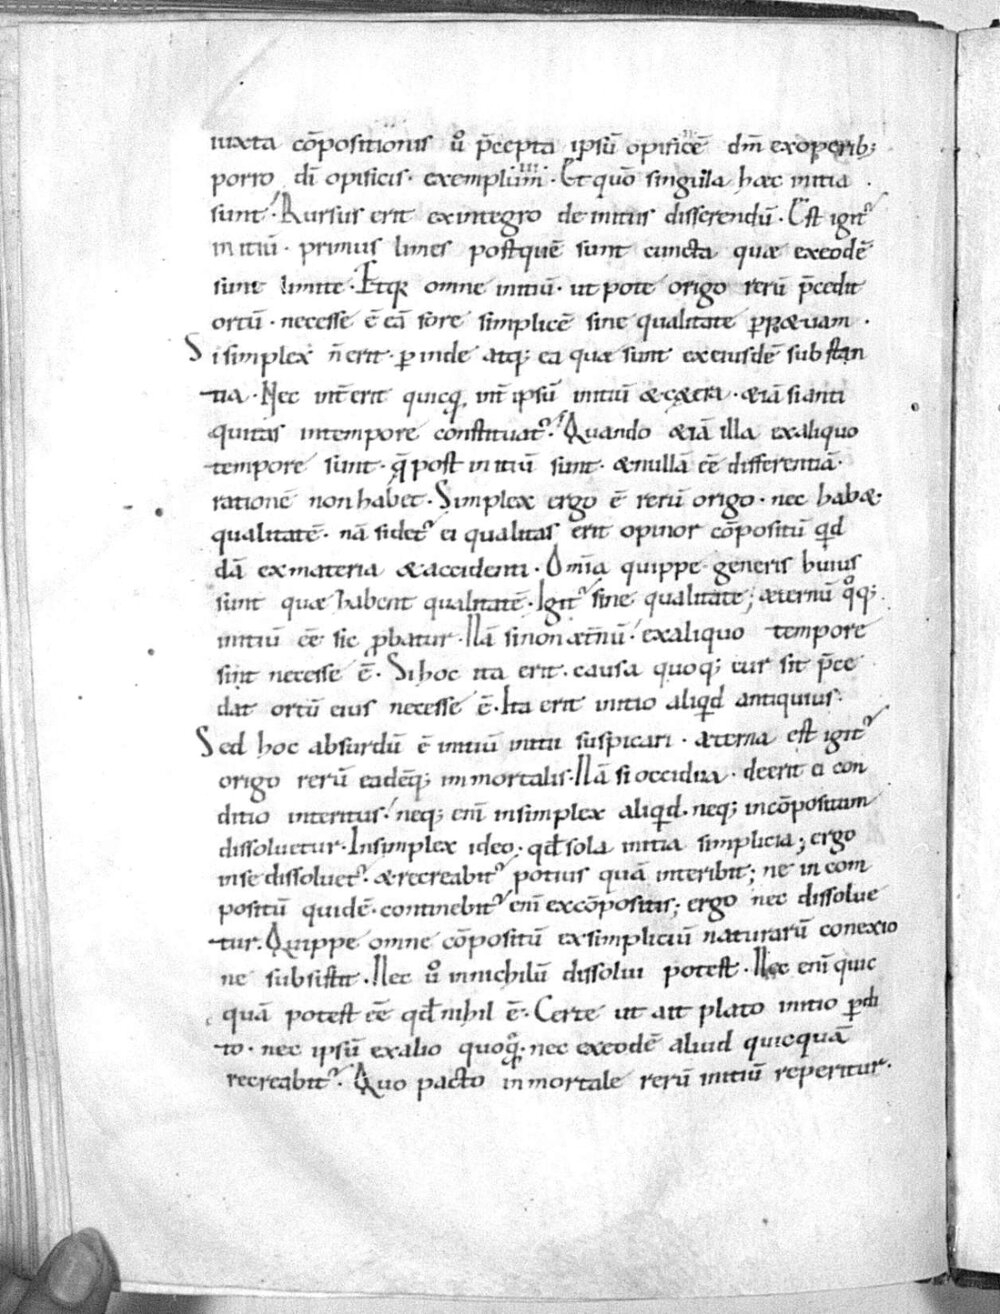 iuxta cōpositionis ů p̄cepta ipsū opificē dm̄ exoperib;
porro di opificis · exemplum · Et quo singula haec initia ·
sunt · Rursus erit exintegro deinitiis disserendū · Est igit᷑
initiū · primus limes postquē sunt cuncta quae exeodē
sunt limite · Itaq; omne initiū · ut pote origo rerū p̄cedit
ortū · necesse ē eā fore simplicē sine qualitate
Si simplex n̄ erit · perinde atq; ea quae sunt exeiusdē substan
tia · Nec int̄erit quicq int̄ ipsū initiū & cetera · & iā si anti
quitas intempore constituat᷑ · Quando & iā illa exaliquo
tempore sunt · q̄ post initiū sunt · & nullā eē differentiā ·
rationē non habet · Simplex ergo ē rerū origo · nec habæ·
qualitatē · nā sidet᷑ ei qualitas erit opinor cōpositū qd
dā exmateria & accidenti · Omnia quippe generis huius
sunt quae habent qualitatē · Igit᷑ sine qualitate; æternū qq;
initiū eē sic ꝓbatur · Nā sinon æt̄nū exaliquo tempore
sint necesse ē · Si hoc ita erit · causa quoq; cur sit p̄ce
dat ortū eius necesse ē · Ita erit initio aliqd antiquius ·
Sed hoc absurdū ē initiū initii suspicari · æterna est igit᷑
origo rerū eadēq; immortalis · Nā si occidua · deerit ei con
ditio interitus · neq; eni insimplex aliqd · neq; incōpositum
dissoluetur · Insimplex ideo · qđ sola initia simplicia; ergo
inse dissoluet᷑ · & recreabit᷑ potius quā interibit; ne in com
positū quidē · continebit᷑ eni excōpositis; ergo nec dissolue
tur · Quippe omne cōpositū exsimpliciū naturarū conexio
ne subsistit · Nec ů innichilū dissolui potest · Nec eni quic
quā potest eē qđ nihil ē · Certe ut ait plato initio ꝑdi
to · nec ipsū exalio quoq · nec exeodē aliud quicquā
recreabit᷑ · Quo pacto inmortale rerū initiū reperitur ·